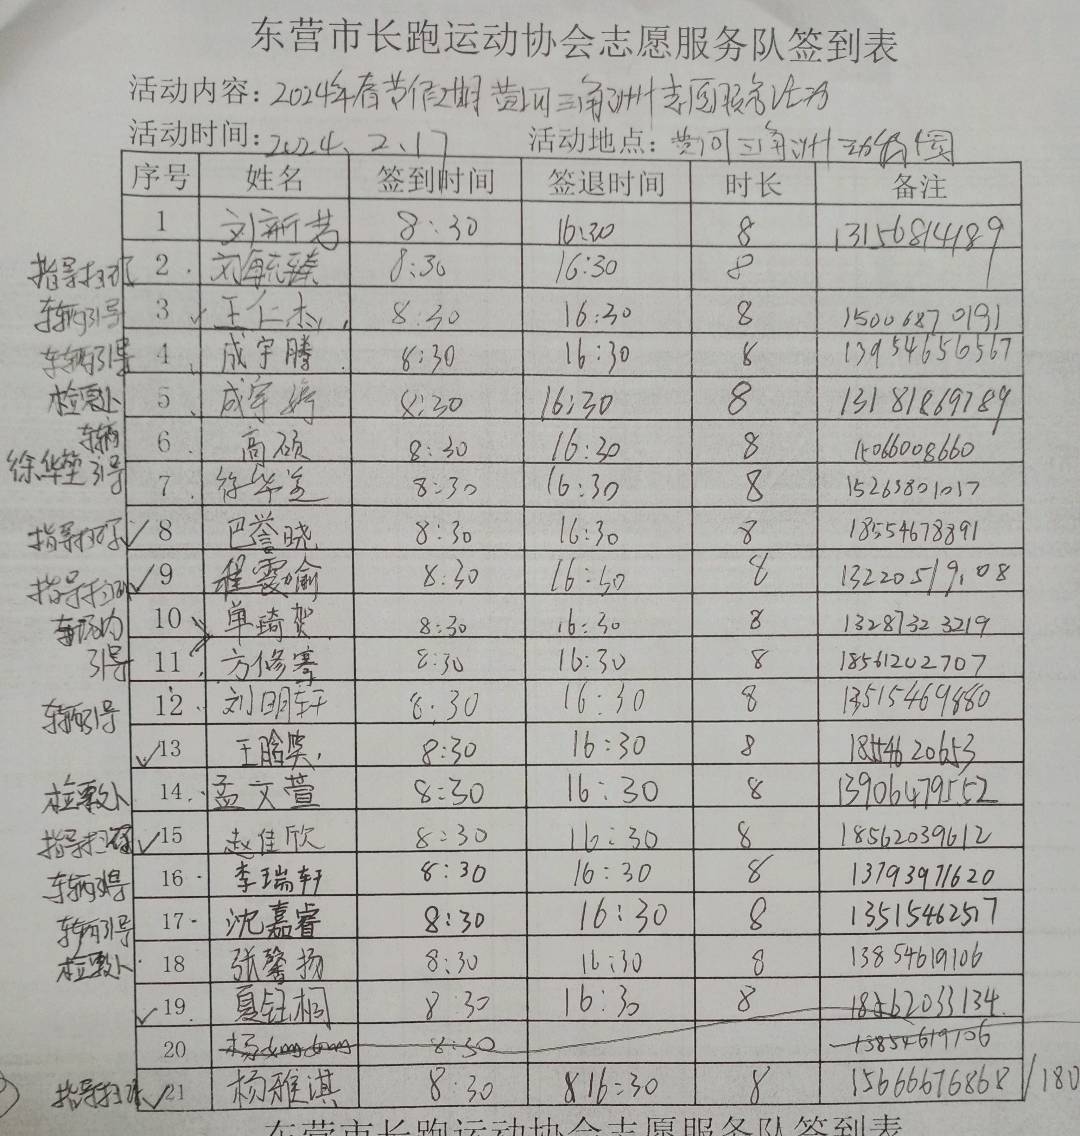 东营市长跑运动协会志愿服务队签到表
活动内容：2024年春节假期黄河三角洲志愿服务活动
活动时间：2024.2.17 活动地点：黄河三角洲动物园
序号 姓名 签到时间 签退时间 时长 备注
1 刘新 8:30 16:30 8 13156814189
指导扫码 2 刘毓臻 8:30 16:30 8
车辆引导 3 王仁杰 8:30 16:30 8 15006870191
车辆引导 4 成宇腾 8:30 16:30 8 13954656567
检票处 5 成宇 8:30 16:30 8 13181869789
车辆引导 6 高硕 8:30 16:30 8 15066008660
徐华莹 7 徐华莹 8:30 16:30 8 15263801017
指导扫码 ✓ 8 巴誉晓 8:30 16:30 8 18554678391
指导扫码 ✓ 9 程雯愉 8:30 16:30 8 13220519108
车场内 10 单琦贺 8:30 16:30 8 13287323219
引导 11 方修骞 8:30 16:30 8 18561202707
车辆引导 12 刘明轩 8:30 16:30 8 13515469880
✓ 13 王晗笑 8:30 16:30 8 18554620653
检票处 14 孟文萱 8:30 16:30 8 13906479552
指导扫码 ✓ 15 赵佳欣 8:30 16:30 8 18562039612
车辆引导 16 李瑞轩 8:30 16:30 8 13793971620
车辆引导 17 沈嘉睿 8:30 16:30 8 13515462517
检票处 18 张馨扬 8:30 16:30 8 13854619106
✓ 19 夏钰桐 8:30 16:30 8 18562033134
20 杨 8:30 13854619106
指导扫码 ✓ 21 杨雅淇 8:30 8 16:30 8 15666676868 /180
东营市长跑运动协会志愿服务队签到表